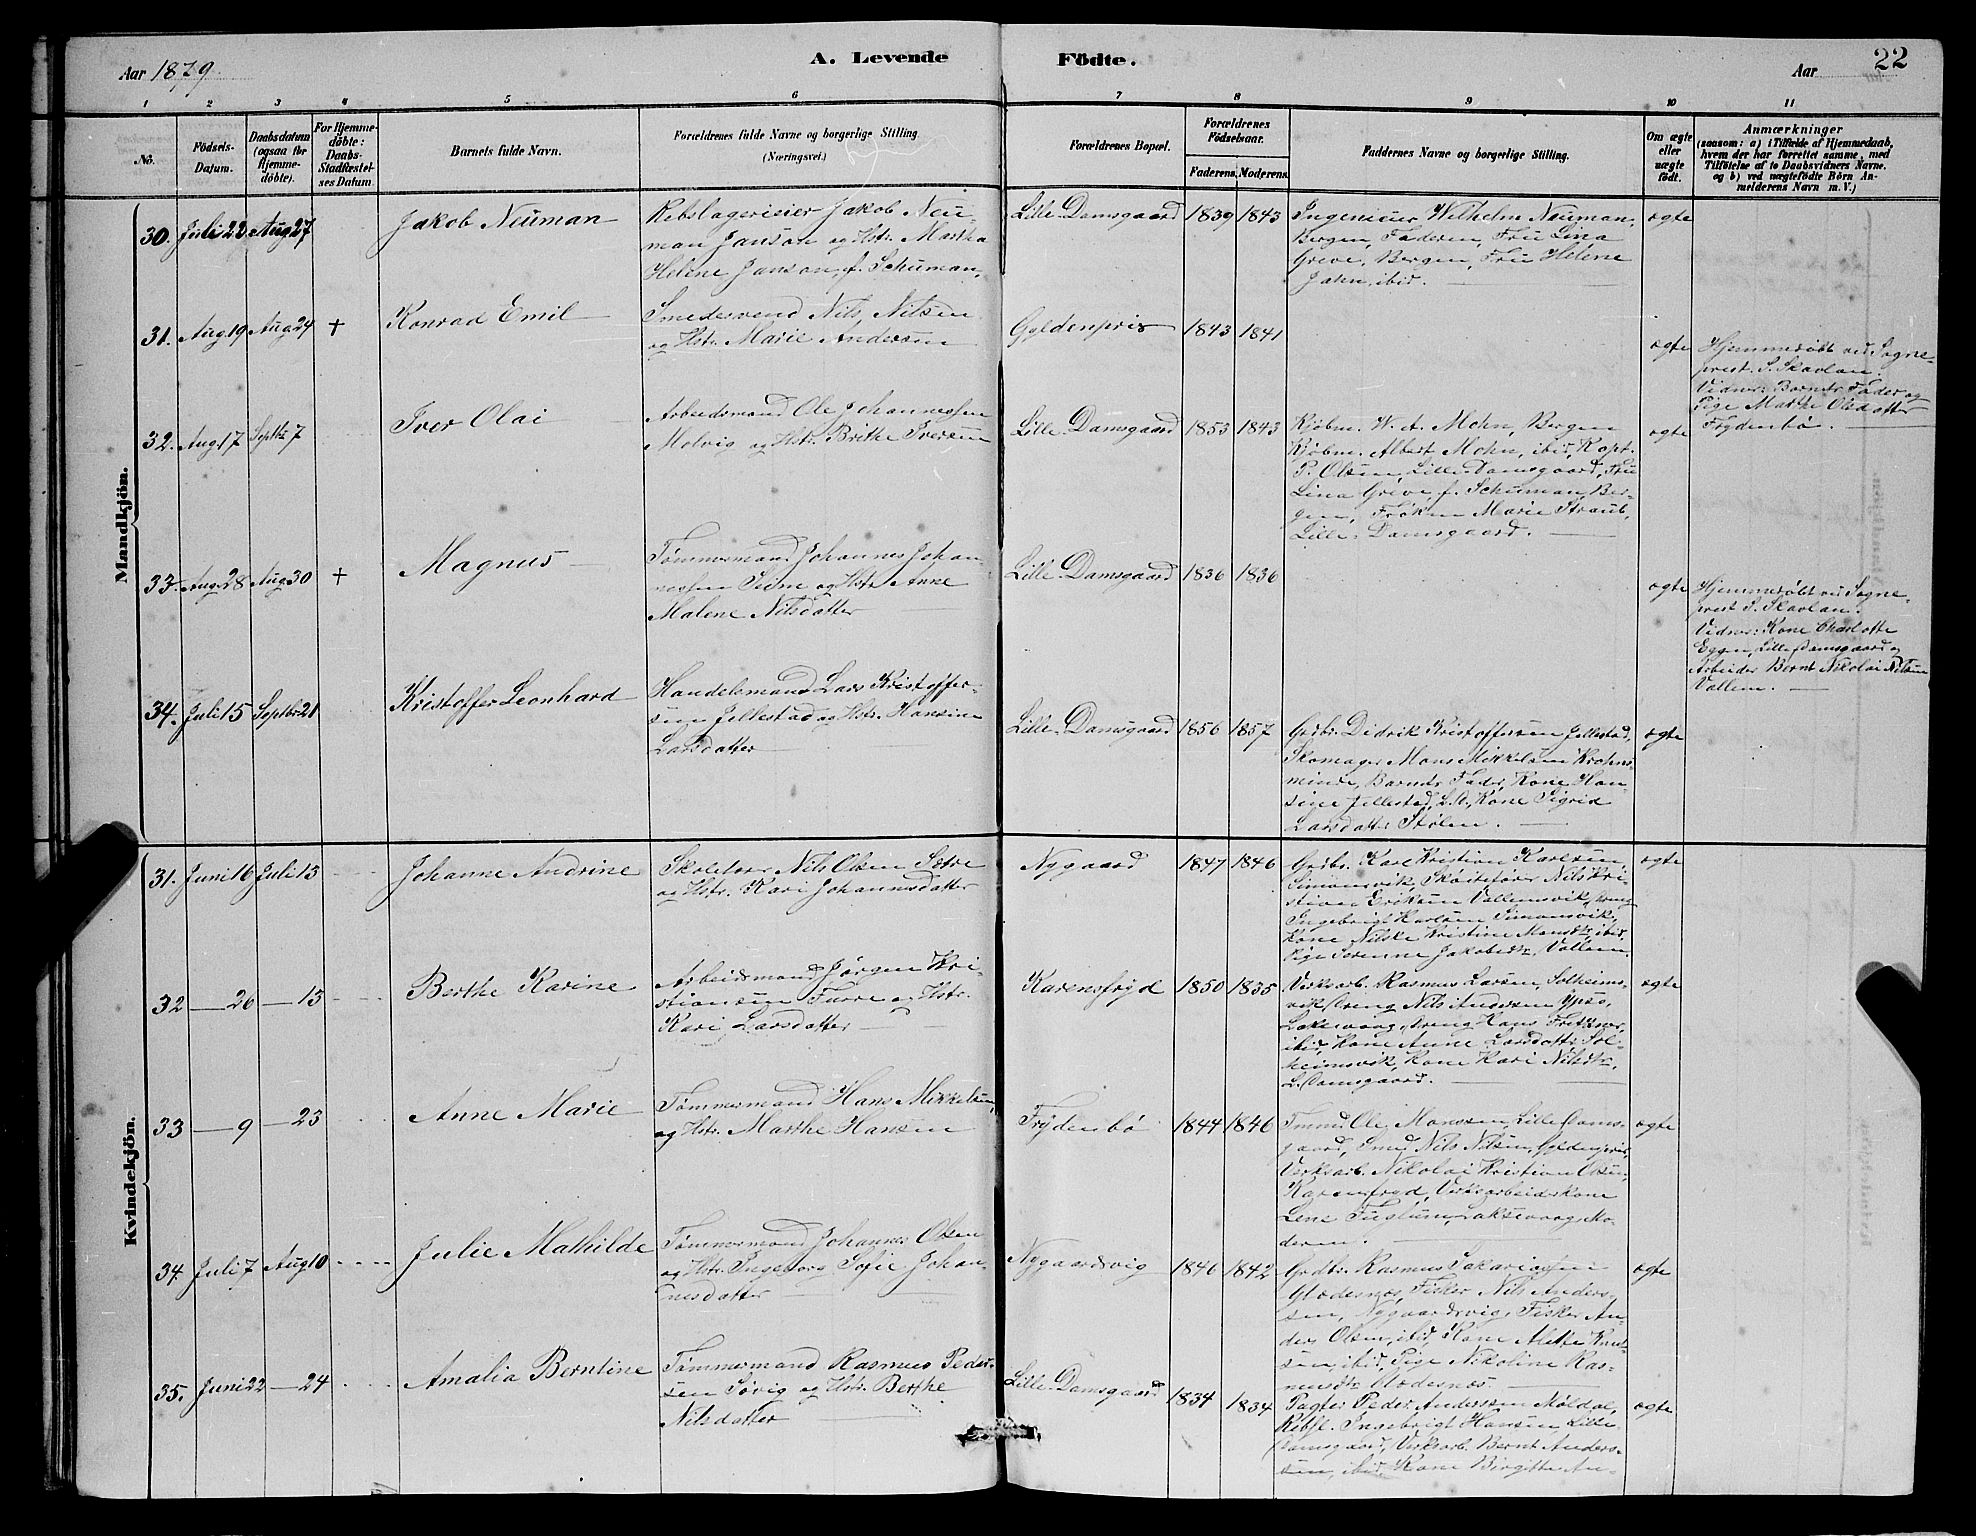 Aar 1879.
A. Levende Födte.
Aar
22
1 2 3 4 5 6 7 8 9 10 11
No.
Födsels-Datum.
Daabsdatum (ogsaa for Hjemme-döbte).
For Hjemme-döbte: Daabs-Stadfæstel-ses Datum.
Barnets fulde Navn.
Forældrenes fulde Navne og borgerlige Stilling.
(Næringsvei.)
Forældrenes Bopæl.
Forældrenes Födselsaar.
Faderens. Moderens.
Faddernes Navne og borgerlige Stilling.
Om ægte eller uægte födt.
Anmærkninger
(saasom: a) i Tilfælde af Hjemmedaab,
hvem der har forrettet samme, med
Tilföielse af to Daabsvidners Navne,
og b) ved uægtefödte Börn An-
melderens Navn m. V.)
Mandkjön.
30. Juli 22 Aug 27
Jakob Neuman
Rebslagerieier Jakob Neu-
man Janson og Hstr. Martha
Helene Janson, f. Schuman.
Lille Damsgaard 1839 1843
Ingeniør Wilhelm Neuman,
Bergen, Faderen, Fru Lina
Greve, Bergen, Fru Helene
Jahn, ibid.
ægte
31. Aug 19 Aug 24 +
Konrad Emil
Smedesvend Nils Nilsen
og Hstr. Marie Andersen
Gyldenpris 1843 1841
ægte
Hjemmedøbt ved Sogne-
prest S. Skavlan.
Vidner: Barnets Fader og
Pige Marthe Olsdatter
Frydenbø.
32. Aug 17 Septbr 7
Iver Olai
Arbeidsmand Ole Johannessen
Melvig og Hstr. Brithe Iversen
Lille Damsgaard 1853 1843
Kjøbm. W. A. Mohn, Bergen
Kjøbm. Albert Mohn, ibid, Kapt.
P. Olsen, Lille Damsgaard, Fru
Lina Greve, f. Schuman, Ber-
gen, Frøken Marie Straub,
Lille Damsgaard.
ægte
33. Aug 28 Aug 30 +
Magnus
Tømmermand Johannes Johan-
nessen og Hstr. Anne
Malene Nilsdatter
Lille Damsgaard 1836 1836
ægte
Hjemmedøbt ved Sogne-
prest S. Skavlan.
Vidner: Kone Charlotte
Lille Damsgaard og
Arbeider Bernt Nikolai Nilsen
Vallem.
34. Juli 15 Septbr 21
Kristoffer Leonhard
Handelsmand Lars Kristoffer-
sen Jellestad og Hstr. Hansine
Larsdatter
Lille Damsgaard 1856 1857
Grdbr. Didrik Kristoffersen Jellestad,
Skomager Mons Mikkelsen Krohns
minde, Barnets Fader, Kone Han-
sine Jellestad, L.D., Kone Sigrid
Larsdatter Stølen.
ægte
Kvindekjön.
31. Juni 16 Juli 13
Johanne Andrine
Skolelærer Nils Olsen Sætre
og Hstr. Kari Johannesdatter
Nygaard 1847 1846
Grdbr. Karl Kristian Karlsen,
Simonsvik, Skøitefører Nils Kri-
stian Eriksen Vallemsvik, Dreng
Ingebrigt Karlsen Simonsvik,
Kone Nilske Kristine Monsdtr. ibid,
Pige Serenne Jakobsdtr. Vallem.
ægte
32 — 26 — 13
Berthe Karine
Arbeidsmand Jørgen Kri-
stiansen Farre og Hstr.
Kari Larsdatter
Karensfryd 1850 1835
Verksarb. Rasmus Larsen, Solheims-
vik, Dreng Nils Andersen Ypsø,
Laksevaag, Dreng Hans Fritzner,
ibid, Kone Anne Larsdatter Sol-
heimsvik, Kone Kari Nilsdtr.,
L. Damsgaard.
ægte
33 — 9 — 23
Anne Marie
Tømmermand Hans Mikkelsen
og Hstr. Marthe Hansen
Frydenbø 1844 1846
Tmmd. Ole Monssen, Lille Dams-
gaard, Smed Nils Nilsen, Gyldenpris,
Verksarb. Nikolai Kristian Olsen,
Karensfryd, Verksarbeiderkone
Lene Fuglum, Laksevaag, Mo-
deren.
ægte
34. Juli 7 Aug 10
Julie Mathilde
Tømmermand Johannes Olsen
og Hstr. Ingeborg Sofie Johan-
nesdatter
Nygaardsvig 1846 1842
Grdbr. Rasmus Sakariassen
Gladesnes, Fisker Nils Anders-
sen, Nygaardsvig, Fisker An-
ders Olsen, ibid, Kone Alette Knut-
sen, ibid, Pige Nikoline Ras-
musdtr. Gladesnæs.
ægte
35. Juni 22 — 24
Amalia Berntine
Tømmermand Rasmus Peder-
sen Sørvig og Hstr. Berthe
Nilsdatter
Lille Damsgaard 1834 1834
Pagter Peder Andersen Møldal,
Rebsl. Ingebrigt Hansen Lille
Damsgaard, Verksarb. Bernt Anders-
sen, ibid, Kone Birgitte An-
ægte